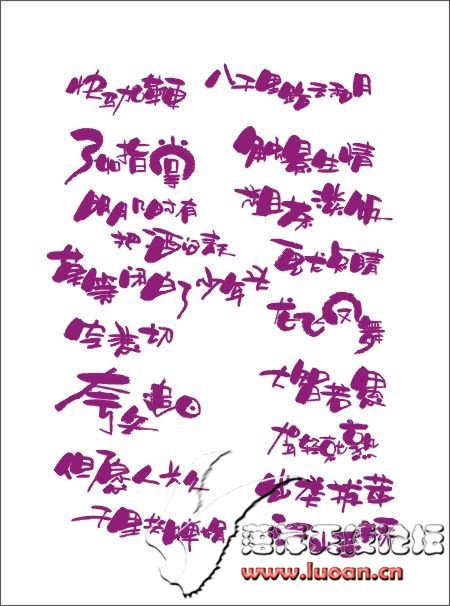 快马加鞭
八千里路云和月
了如指掌
触景生情
明月几时有
把酒问青天
粗茶淡饭
莫等闲白了少年头
画龙点睛
空悲切
龙飞凤舞
夸父追日
大智若愚
驾轻就熟
但愿人长久
出类拔萃
千里共婵娟
www.luoan.cn